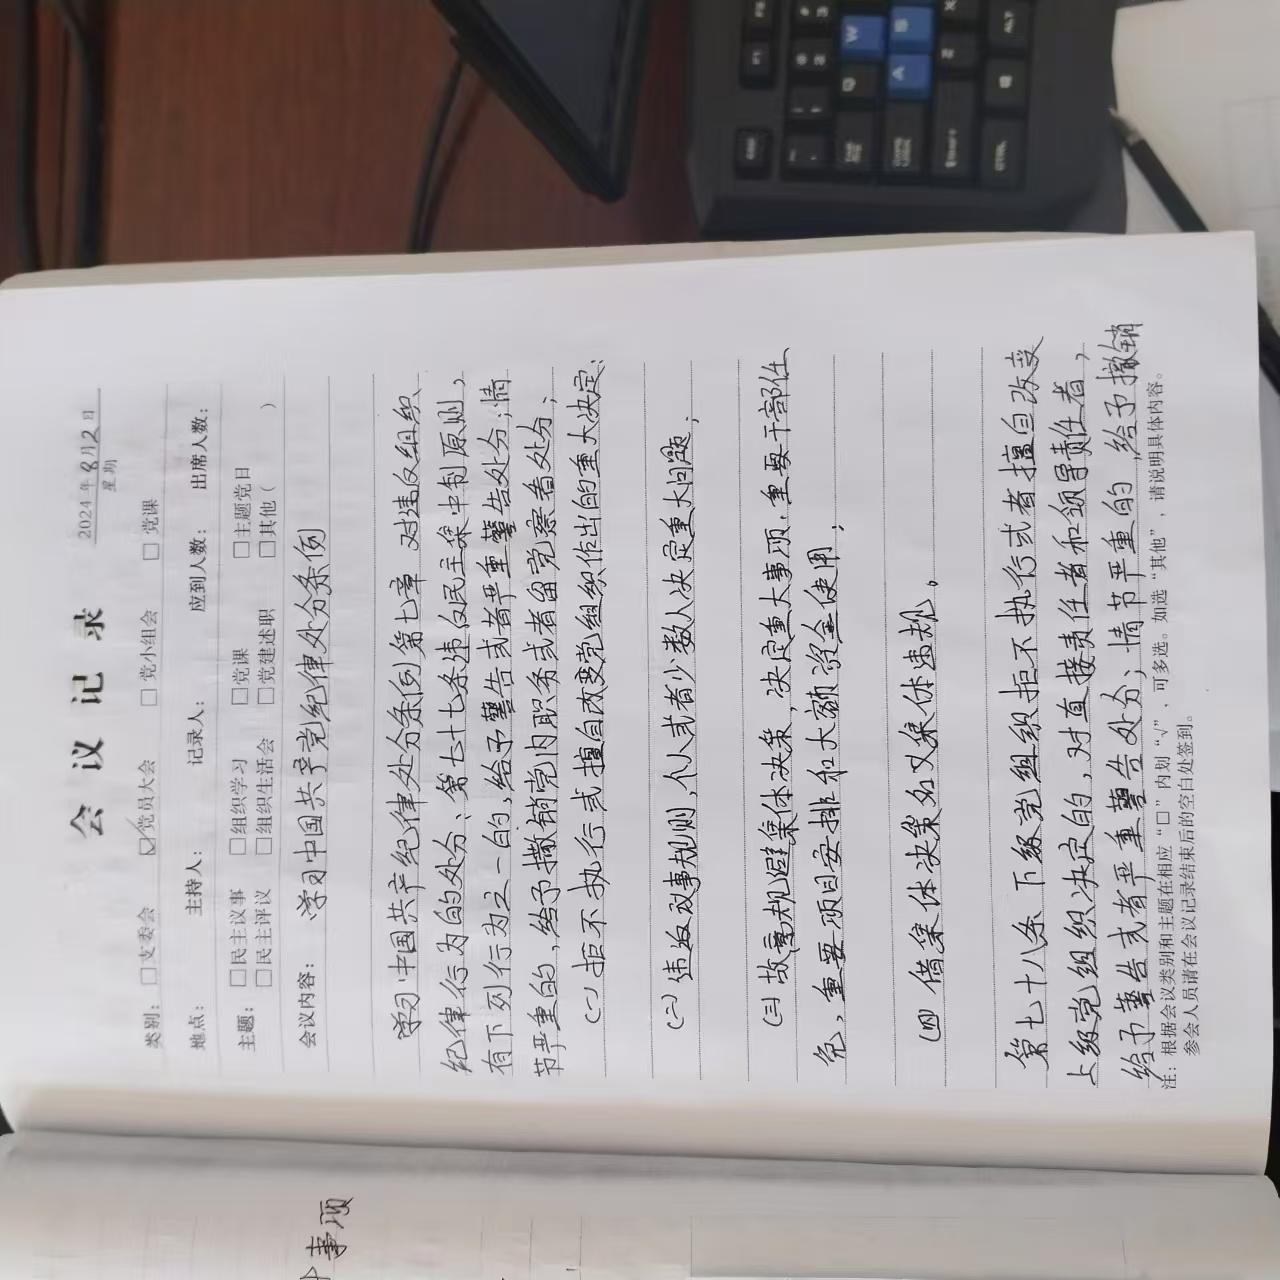 会议记录
2024年8月2日
星期
类别：□支委会 ☑党员大会 □党小组会 □党课
地点： 主持人： 记录人： 应到人数： 出席人数：
主题：□民主议事 □组织学习 □党课 □主题党日
□民主评议 □组织生活会 □党建述职 □其他（ ）
会议内容： 学习中国共产党纪律处分条例
学习中国共产纪律处分条例第七章 对违反组织
纪律行为的处分：第七十七条违反民主集中制原则，
有下列行为之一的，给予警告或者严重警告处分；情
节严重的，给予撤销党内职务或者留党察看处分；
(一) 拒不执行或擅自改变党组织作出的重大决定；
(二) 违反议事规则，个人或者少数人决定重大问题；
(三) 故意规避集体决策，决定重大事项、重要干部任
免，重要项目安排和大额资金使用；
(四 借集体决策名义集体违规。
第七十八条 下级党组织拒不执行或者擅自改变
上级党组织决定的，对直接责任者和领导责任者，
给予警告或者严重警告处分；情节严重的，给予撤销
注：根据会议类别和主题在相应“□”内划“√”，可多选。如选“其他”，请说明具体内容。
参会人员请在会议记录结束后的空白处签到。
事项